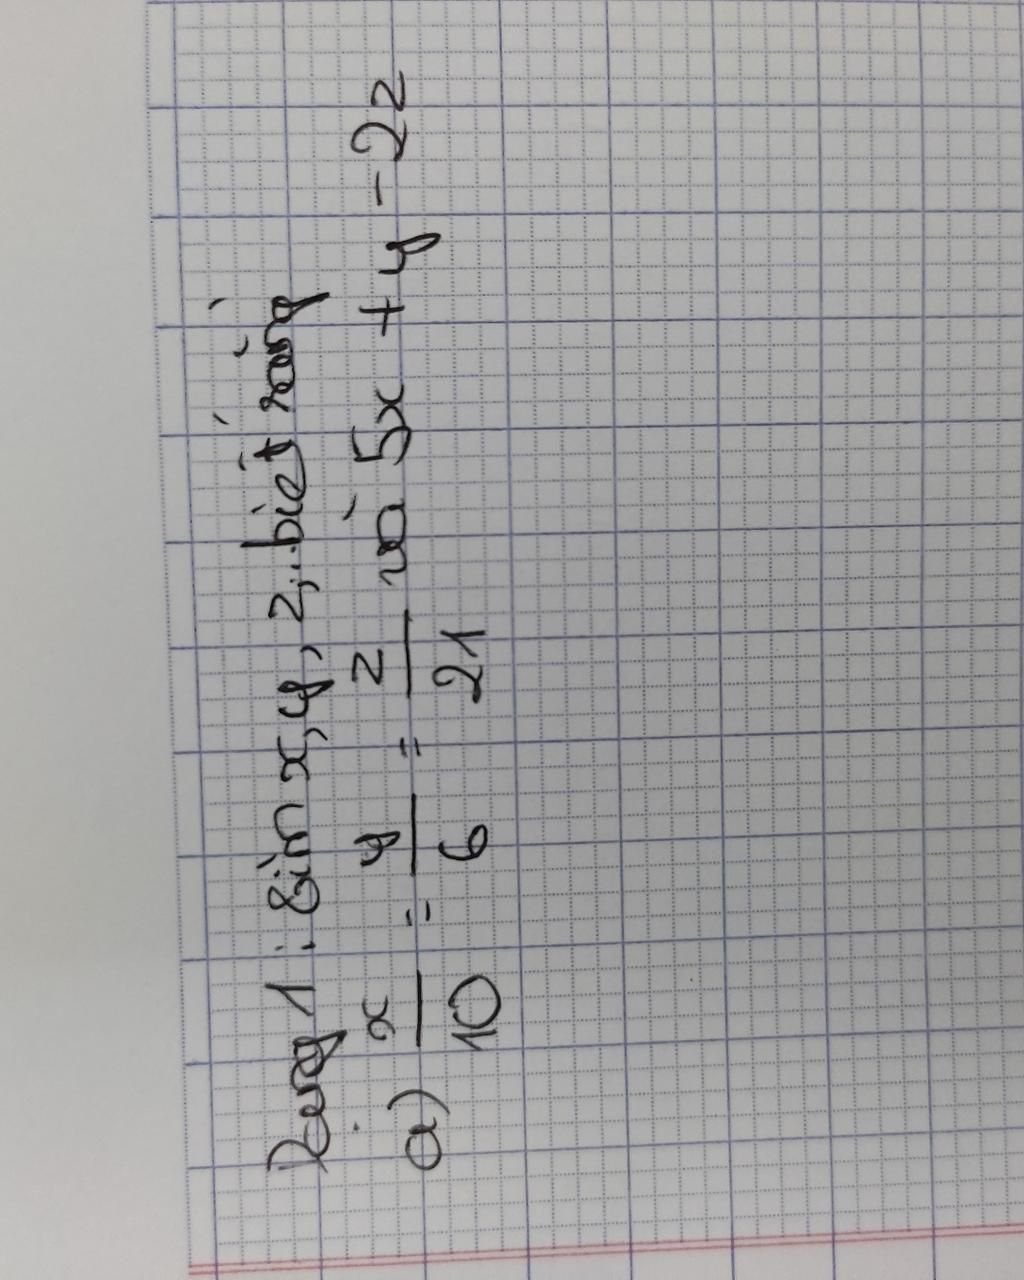 Dạng 1: Tìm x, y, z, biết rằng
a) x/10 = y/6 = z/21 và 5x + y - 2z